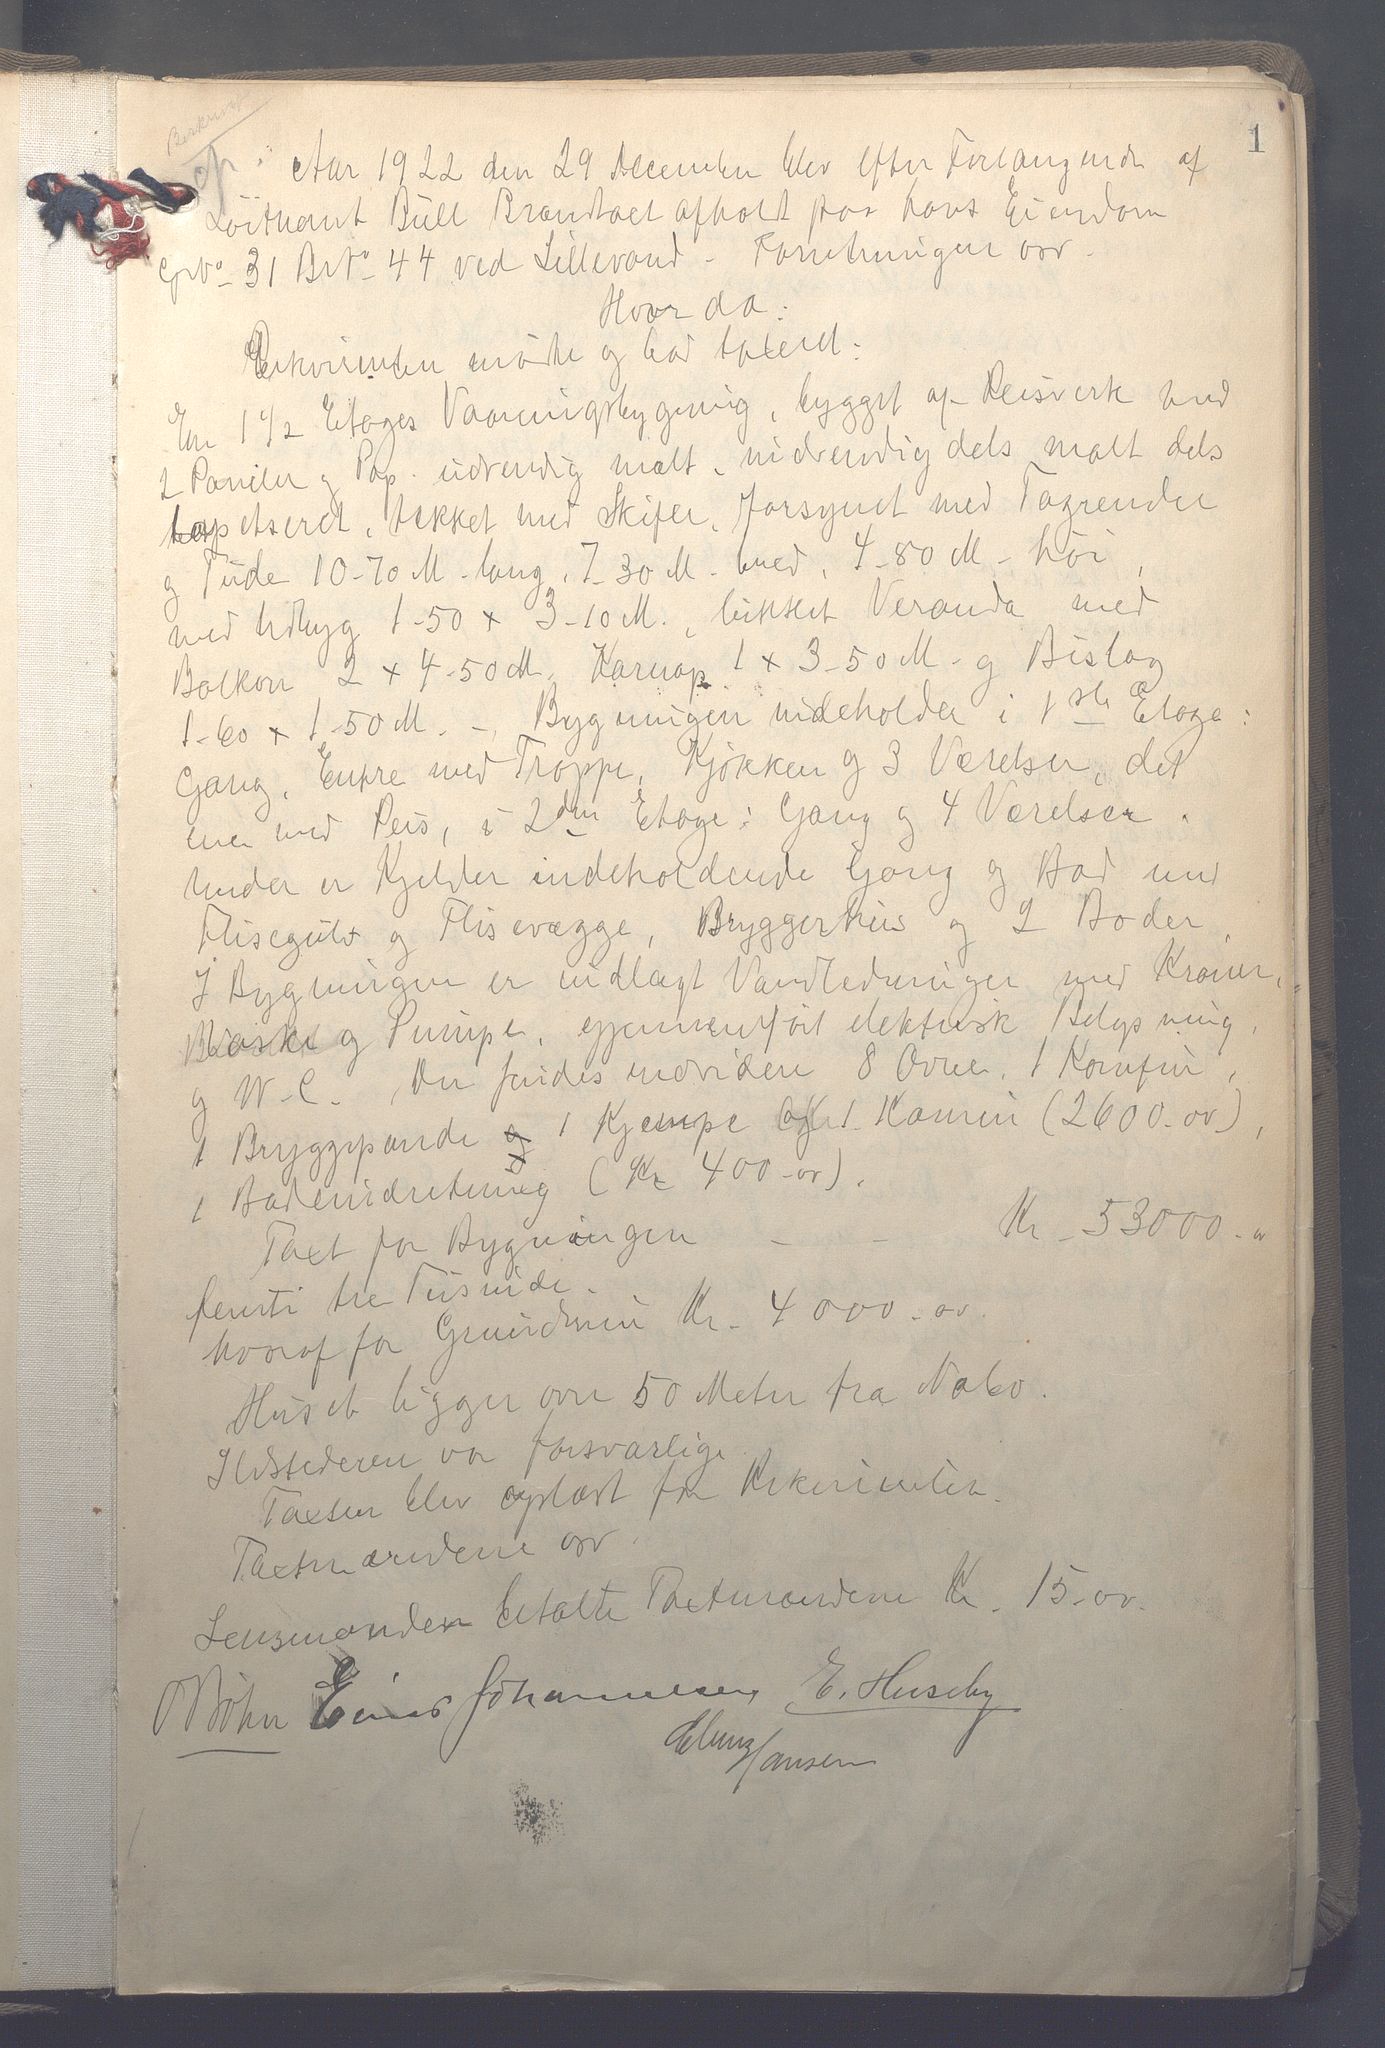 1
Aar 1922 den 29 December blev efter Forlangende af
Löitnant Bull Brandtaxt afholdt paa hans Eiendom
Gno 31 Bno 44 ved Lillevand - Forretningen osv.
Hvorda:
Rekvirenten mødte og bad taxert:
En 1 1/2 Etages Vaaningsbygning, bygget af Reisverk med
2 Paneler og Pap. udvendig malt, indvendig dels malt dels
tapetseret, tækket med Skifer, forsynet med Tagrender
og Tude 10-70 M lang, 7-30 M bred, 4-80 M høi,
med Udbyg 1-50 x 3-10 M., lukket Veranda med
Balkon 2 x 4-50 M, Karnap 1 x 3-50 M - og Bislag
1-60 x 1-50 M. -. Bygningen indeholder i 1ste Etage:
Gang, Entre med Trappe, Kjøkken og 3 Værelser, det
ene med Peis, i 2den Etage: Gang og 4 Værelser.
Under er Kjelder indeholdende Gang og Bad med
Flisegulv og Flisevægge, Bryggerhus og 2 Boder,
I Bygningen er indlagt Vandledninger med Kraner,
Vaske og Pumpe, gjennemført elektrisk Belysning,
og W.C. Der findes endvidere 8 Ovne, 1 Komfur,
1 Bryggepande og 1 Kjempe og 1 Kamin (2600-ov),
1 Badeindretning (Kr 400-ov).
Taxt for Bygningen - - Kr - 53000-ov
femti tre Tusinde.
hvoraf for Grundmur Kr - 4000-ov.
Huset ligger over 50 Meter fra Nabo.
Ildstederen var forsvarlige
Taxten blev oplæst for Rekvirenten.
Taxtmændene osv.
Lensmanden betalte Taxtmændene Kr. 15-ov.
Bøhn Einar Johannessen E. Huseby
Hansen